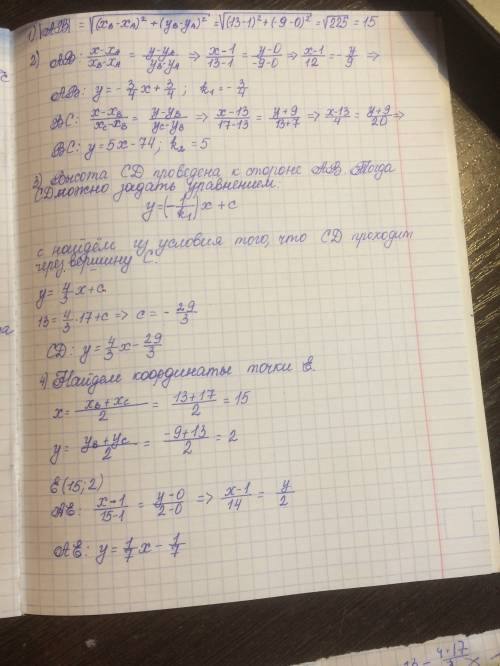 1) |AB| = √((x_B-x_A)² + (y_B-y_A)²) = √((13-1)²+(-9-0)²) = √225 = 15
2) AB: (x-x_A)/(x_B-x_A) = (y-y_A)/(y_B-y_A) ⇒ (x-1)/(13-1) = (y-0)/(-9-0) ⇒ (x-1)/12 = -y/9 ⇒
AB: y = -3/4 x + 3/4 ; k₁ = -3/4
BC: (x-x_B)/(x_C-x_B) = (y-y_B)/(y_C-y_B) ⇒ (x-13)/(17-13) = (y+9)/(13+7) ⇒ (x-13)/4 = (y+9)/20 ⇒
BC: y = 5x - 74; k₂ = 5
3) Высота CD проведена к стороне AB. Тогда
CD можно задать уравнением:
y = (-1/k₁) x + c
c найдём из условия того, что CD проходит
через вершину C.
y = 4/3 x + c
13 = 4/3 · 17 + c => c = - 29/3
CD: y = 4/3 x - 29/3
4) Найдем координаты точки E.
x = (x_B + x_C)/2 = (13+17)/2 = 15
y = (y_B + y_C)/2 = (-9+13)/2 = 2
E (15; 2)
AE: (x-1)/(15-1) = (y-0)/(2-0) => (x-1)/14 = y/2
AE: y = 1/7 x - 1/7